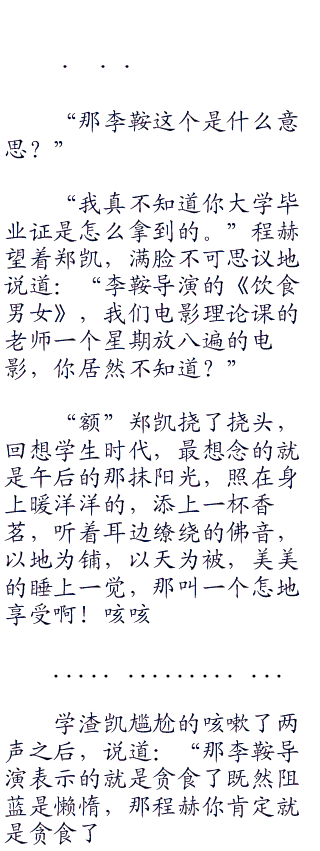 . . .
“那李鞍这个是什么意
思？”
“我真不知道你大学毕
业证是怎么拿到的。”程赫
望着郑凯，满脸不可思议地
说道：“李鞍导演的《饮食
男女》，我们电影理论课的
老师一个星期放八遍的电
影，你居然不知道？”
“额”郑凯挠了挠头，
回想学生时代，最想念的就
是午后的那抹阳光，照在身
上暖洋洋的，添上一杯香
茗，听着耳边缭绕的佛音，
以地为铺，以天为被，美美
的睡上一觉，那叫一个怎地
享受啊！咳咳
..... ......... ...
学渣凯尴尬的咳嗽了两
声之后，说道：“那李鞍导
演表示的就是贪食了既然阻
蓝是懒惰，那程赫你肯定就
是贪食了